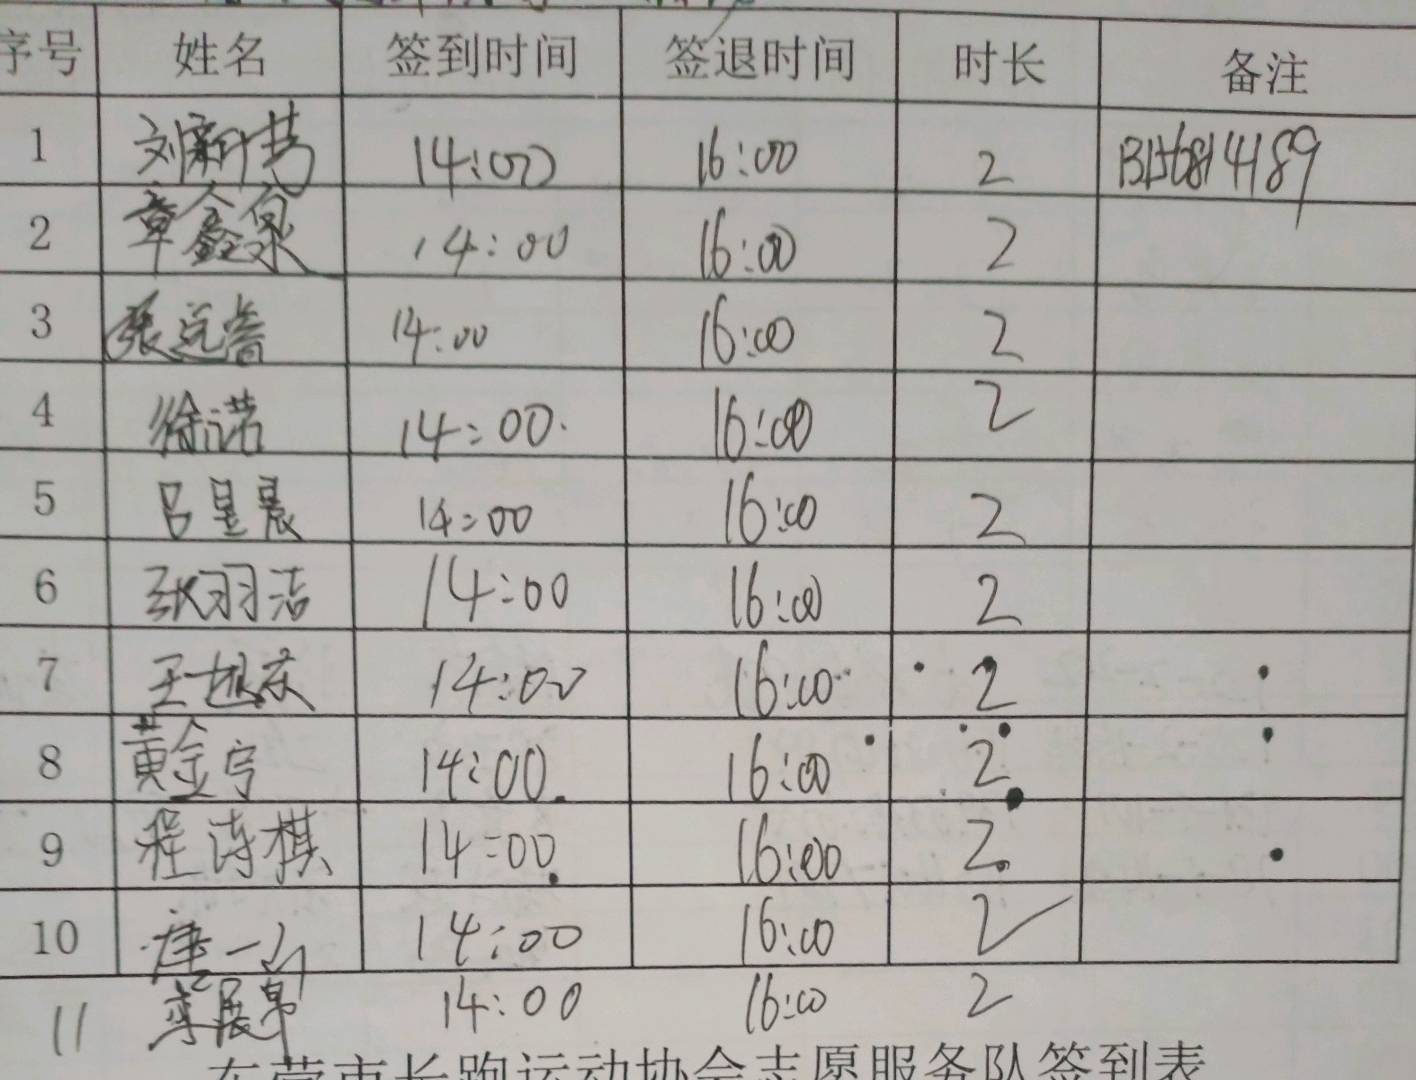 序号 姓名 签到时间 签退时间 时长 备注
1 刘新 14:00 16:00 2
2 章鑫泉 14:00 16:00 2
3 张 14:00 16:00 2
4 徐诺 14:00 16:00 2
5 吕昱晨 14:00 16:00 2
6 张羽洁 14:00 16:00 2
7 王 14:00 16:00 2
8 黄金宁 14:00 16:00 2
9 程诗棋 14:00 16:00 2
10 唐一 14:00 16:00 2
11 李展 14:00 16:00 2
东营市长跑运动协会志愿服务队签到表